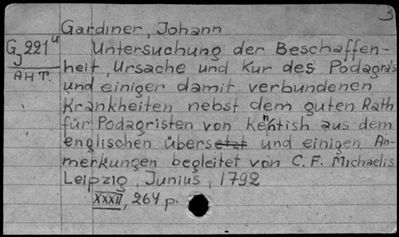 3
Gardiner, Johann
GJ 221u Untersuchung der Beschaffen-
heit, Ursache und Kur des Podagras
AHT. und einiger damit verbundenen
Krankheiten nebst dem guten Rath
für Podagristen von Kentish aus dem
englischen übersetzt und einigen An-
merkungen begleitet von C. F. Michaelis
Leipzig, Junius, 1792
XXXII, 264 p.